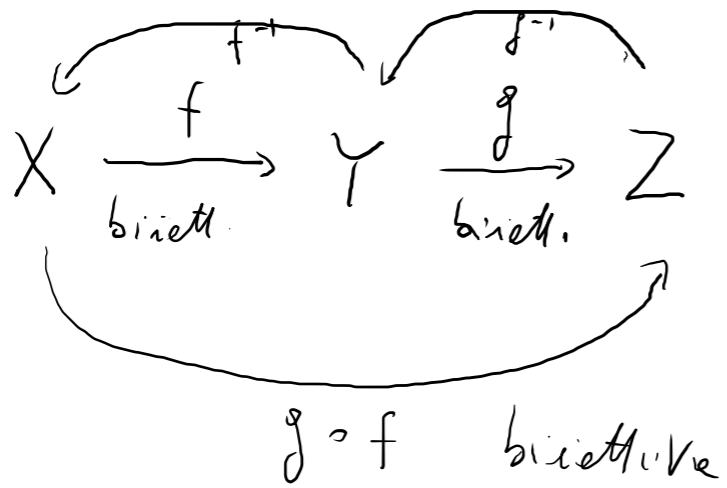 f⁻¹ g⁻¹
f g
X Y Z
biiett. biiett.
g ∘ f biiettiva